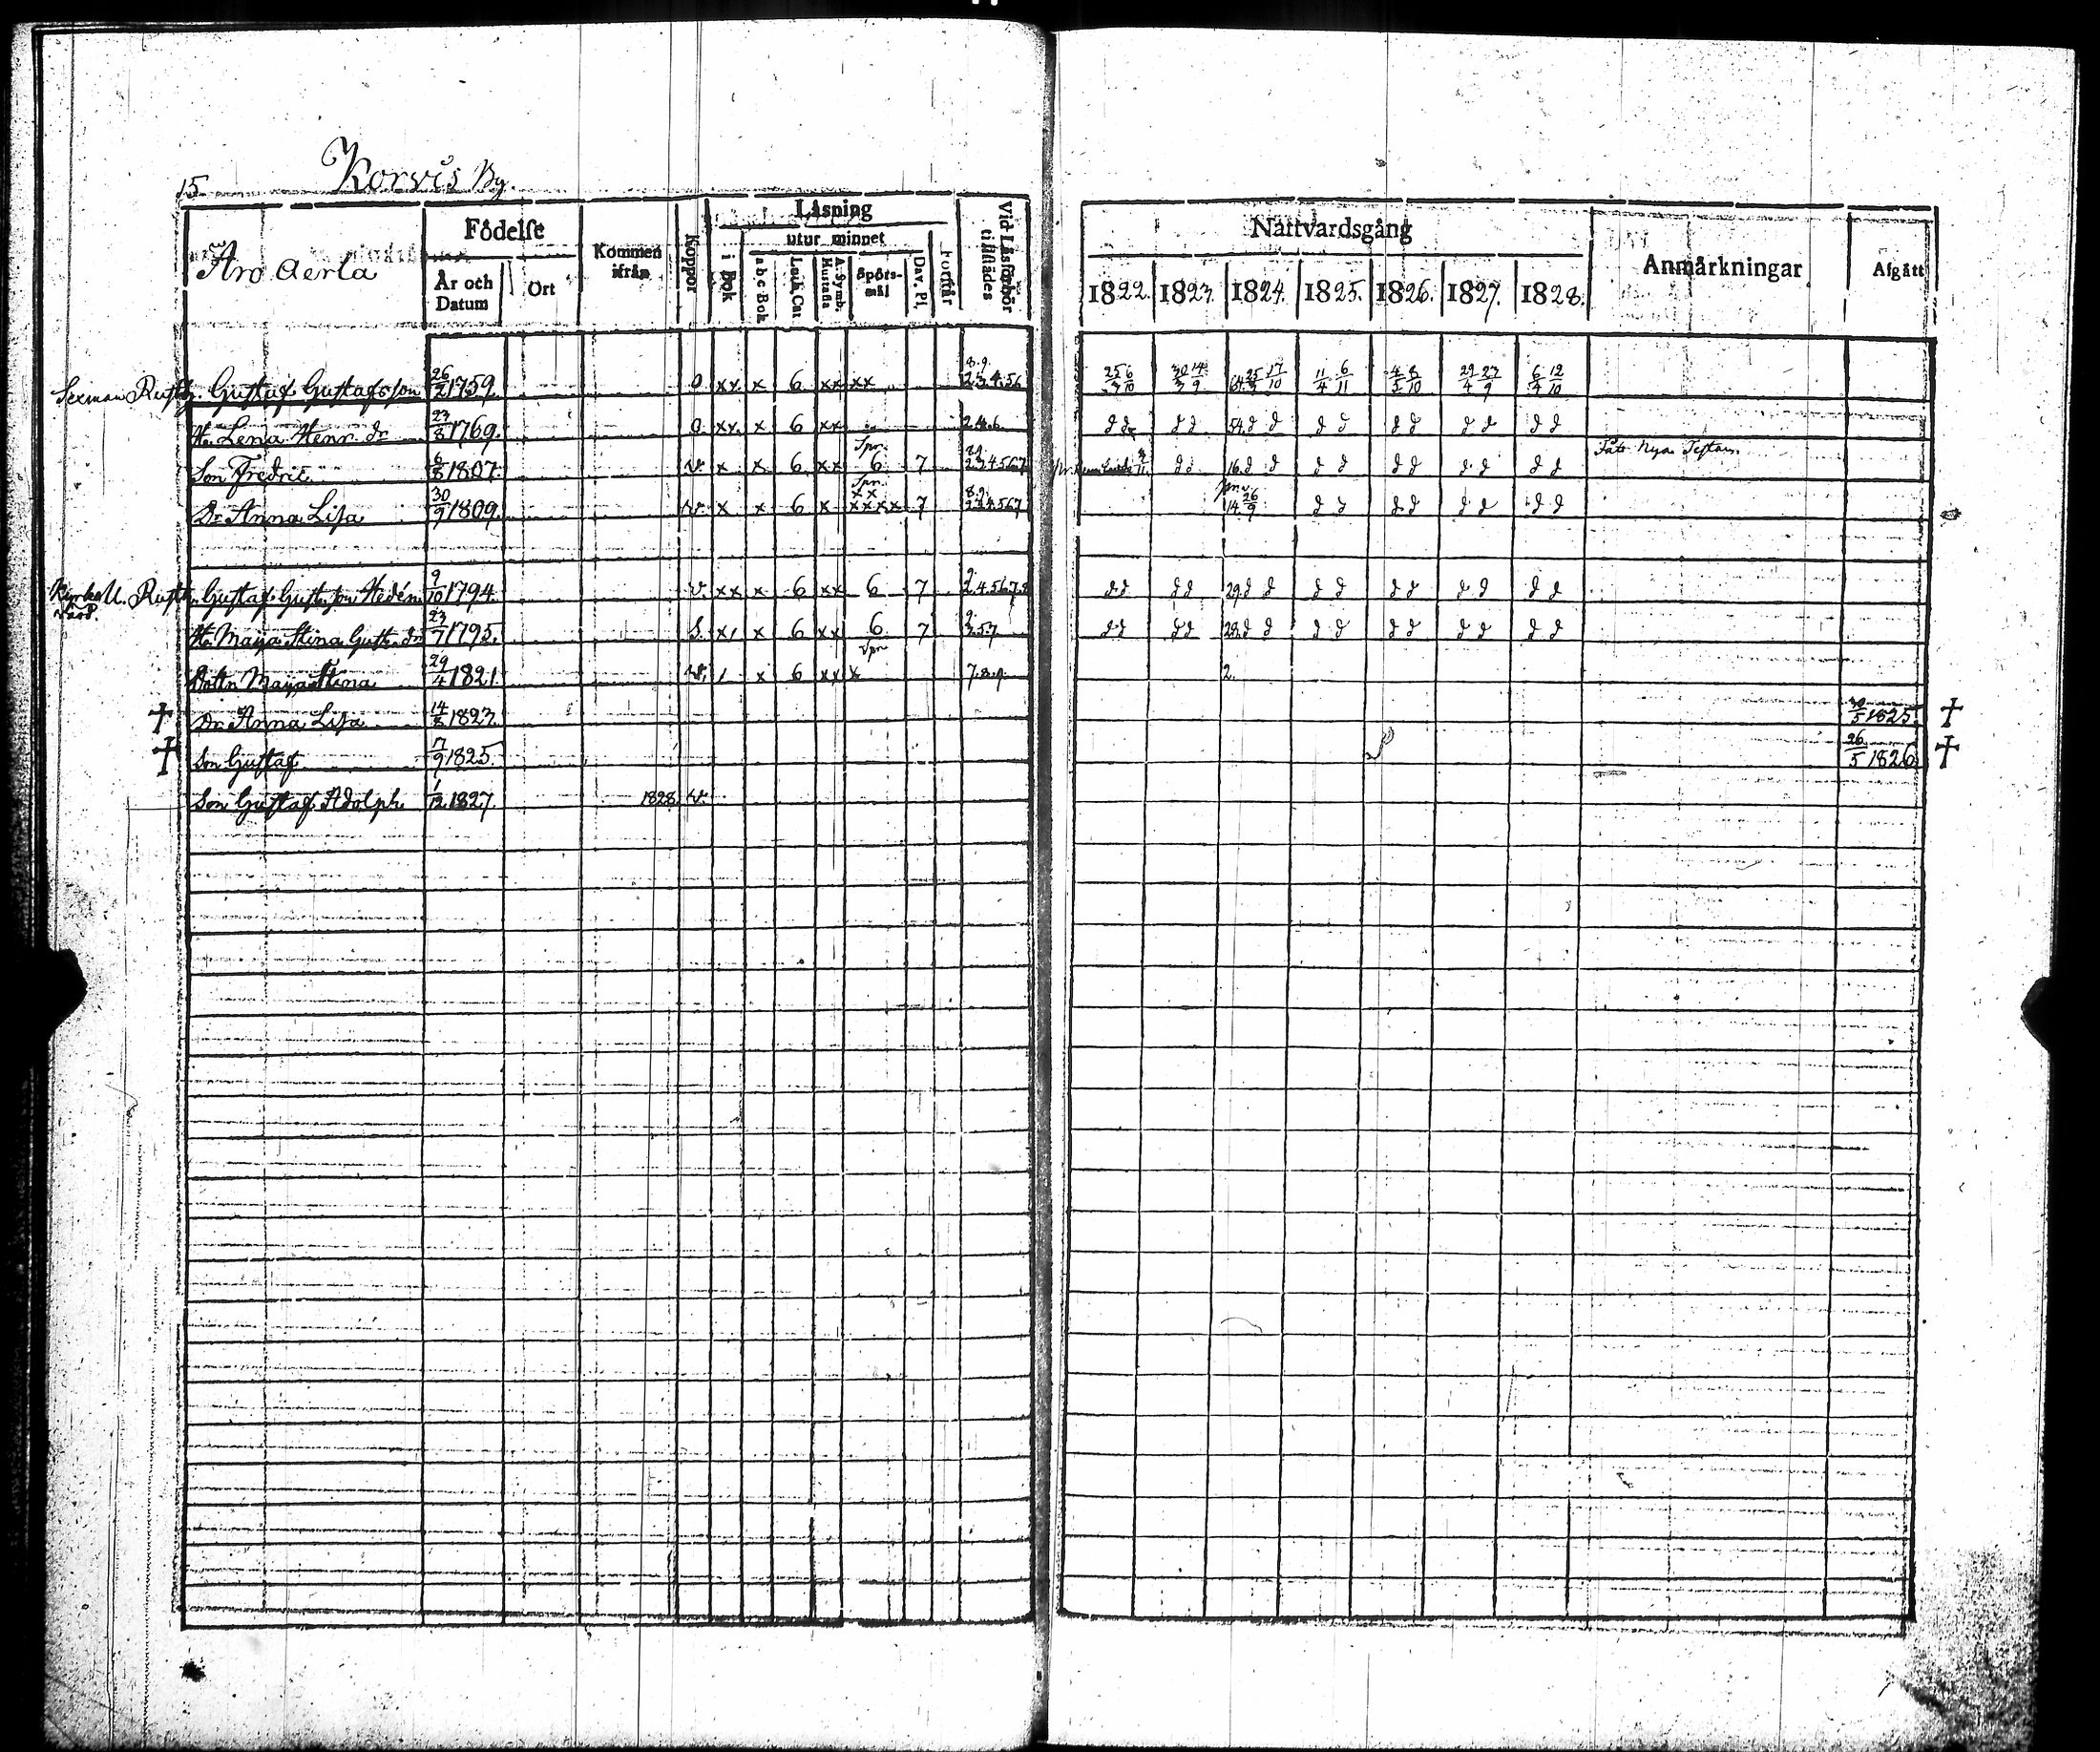 15 Korvis By.
Aro Aerla
Födelse
År och Datum
Ort
Kommen ifrån
Koppor
Läsning
i Bok
utur minnet
a b c Bok
Luth. Cat
A. Symb. Hustafla
Spörs-mål
Dav. Ps.
Vid Läsförhör tillstädes
Nattvardsgång
1822. 1823. 1824. 1825. 1826. 1827. 1828.
Anmärkningar
Afgått
Sexman Rusth. Gustaf Gustafsson 26/2 1759. o. xx. x 6 xx xx 8.9. 2.3.4.56 25/3 6/10 30/3 14/9 64. 25/3 17/10 11/4 6/11 4/5 8/10 29/4 23/9 6/4 12/10
H. Lena Henr. dr 23/8 1769. o. xx. x 6 xx 2.4.6. d d 54. d d d d d d d d d d
Son Fredric 6/8 1807. v. x x 6 xx Spr. 6 7 2.3.4.5.6.7 d d 16. d d d d d d d d d d Fått Nya Testam.
Dr Anna Lisa 30/9 1809. v. x x 6 x Spr. xx xxxx 7 8.9. 2.3.4.5.6.7 14. 26/9 d d d d d d d d
Kyrko U. Rusth. Gustaf Gust. son Hedén 9/10 1794. v. xx x 6 xx 6 7 9. 2.4.5.6.7.8 d d d d 29. d d d d d d d d d d
H. Maija Stina Gust. dr 23/7 1795. S. x x 6 xx 6 Spr 7 9. 3.5.7 d d d d 28. d d d d d d d d d d
Dottr Maija Stina 29/4 1821. v. / x 6 xx x 7.8.9. 2.
† Dr Anna Lisa 14/8 1823. 30/5 1825. †
† Son Gustaf 7/9 1825. 26/5 1826. †
Son Gustaf Adolph 1/12 1827. 1828. v.